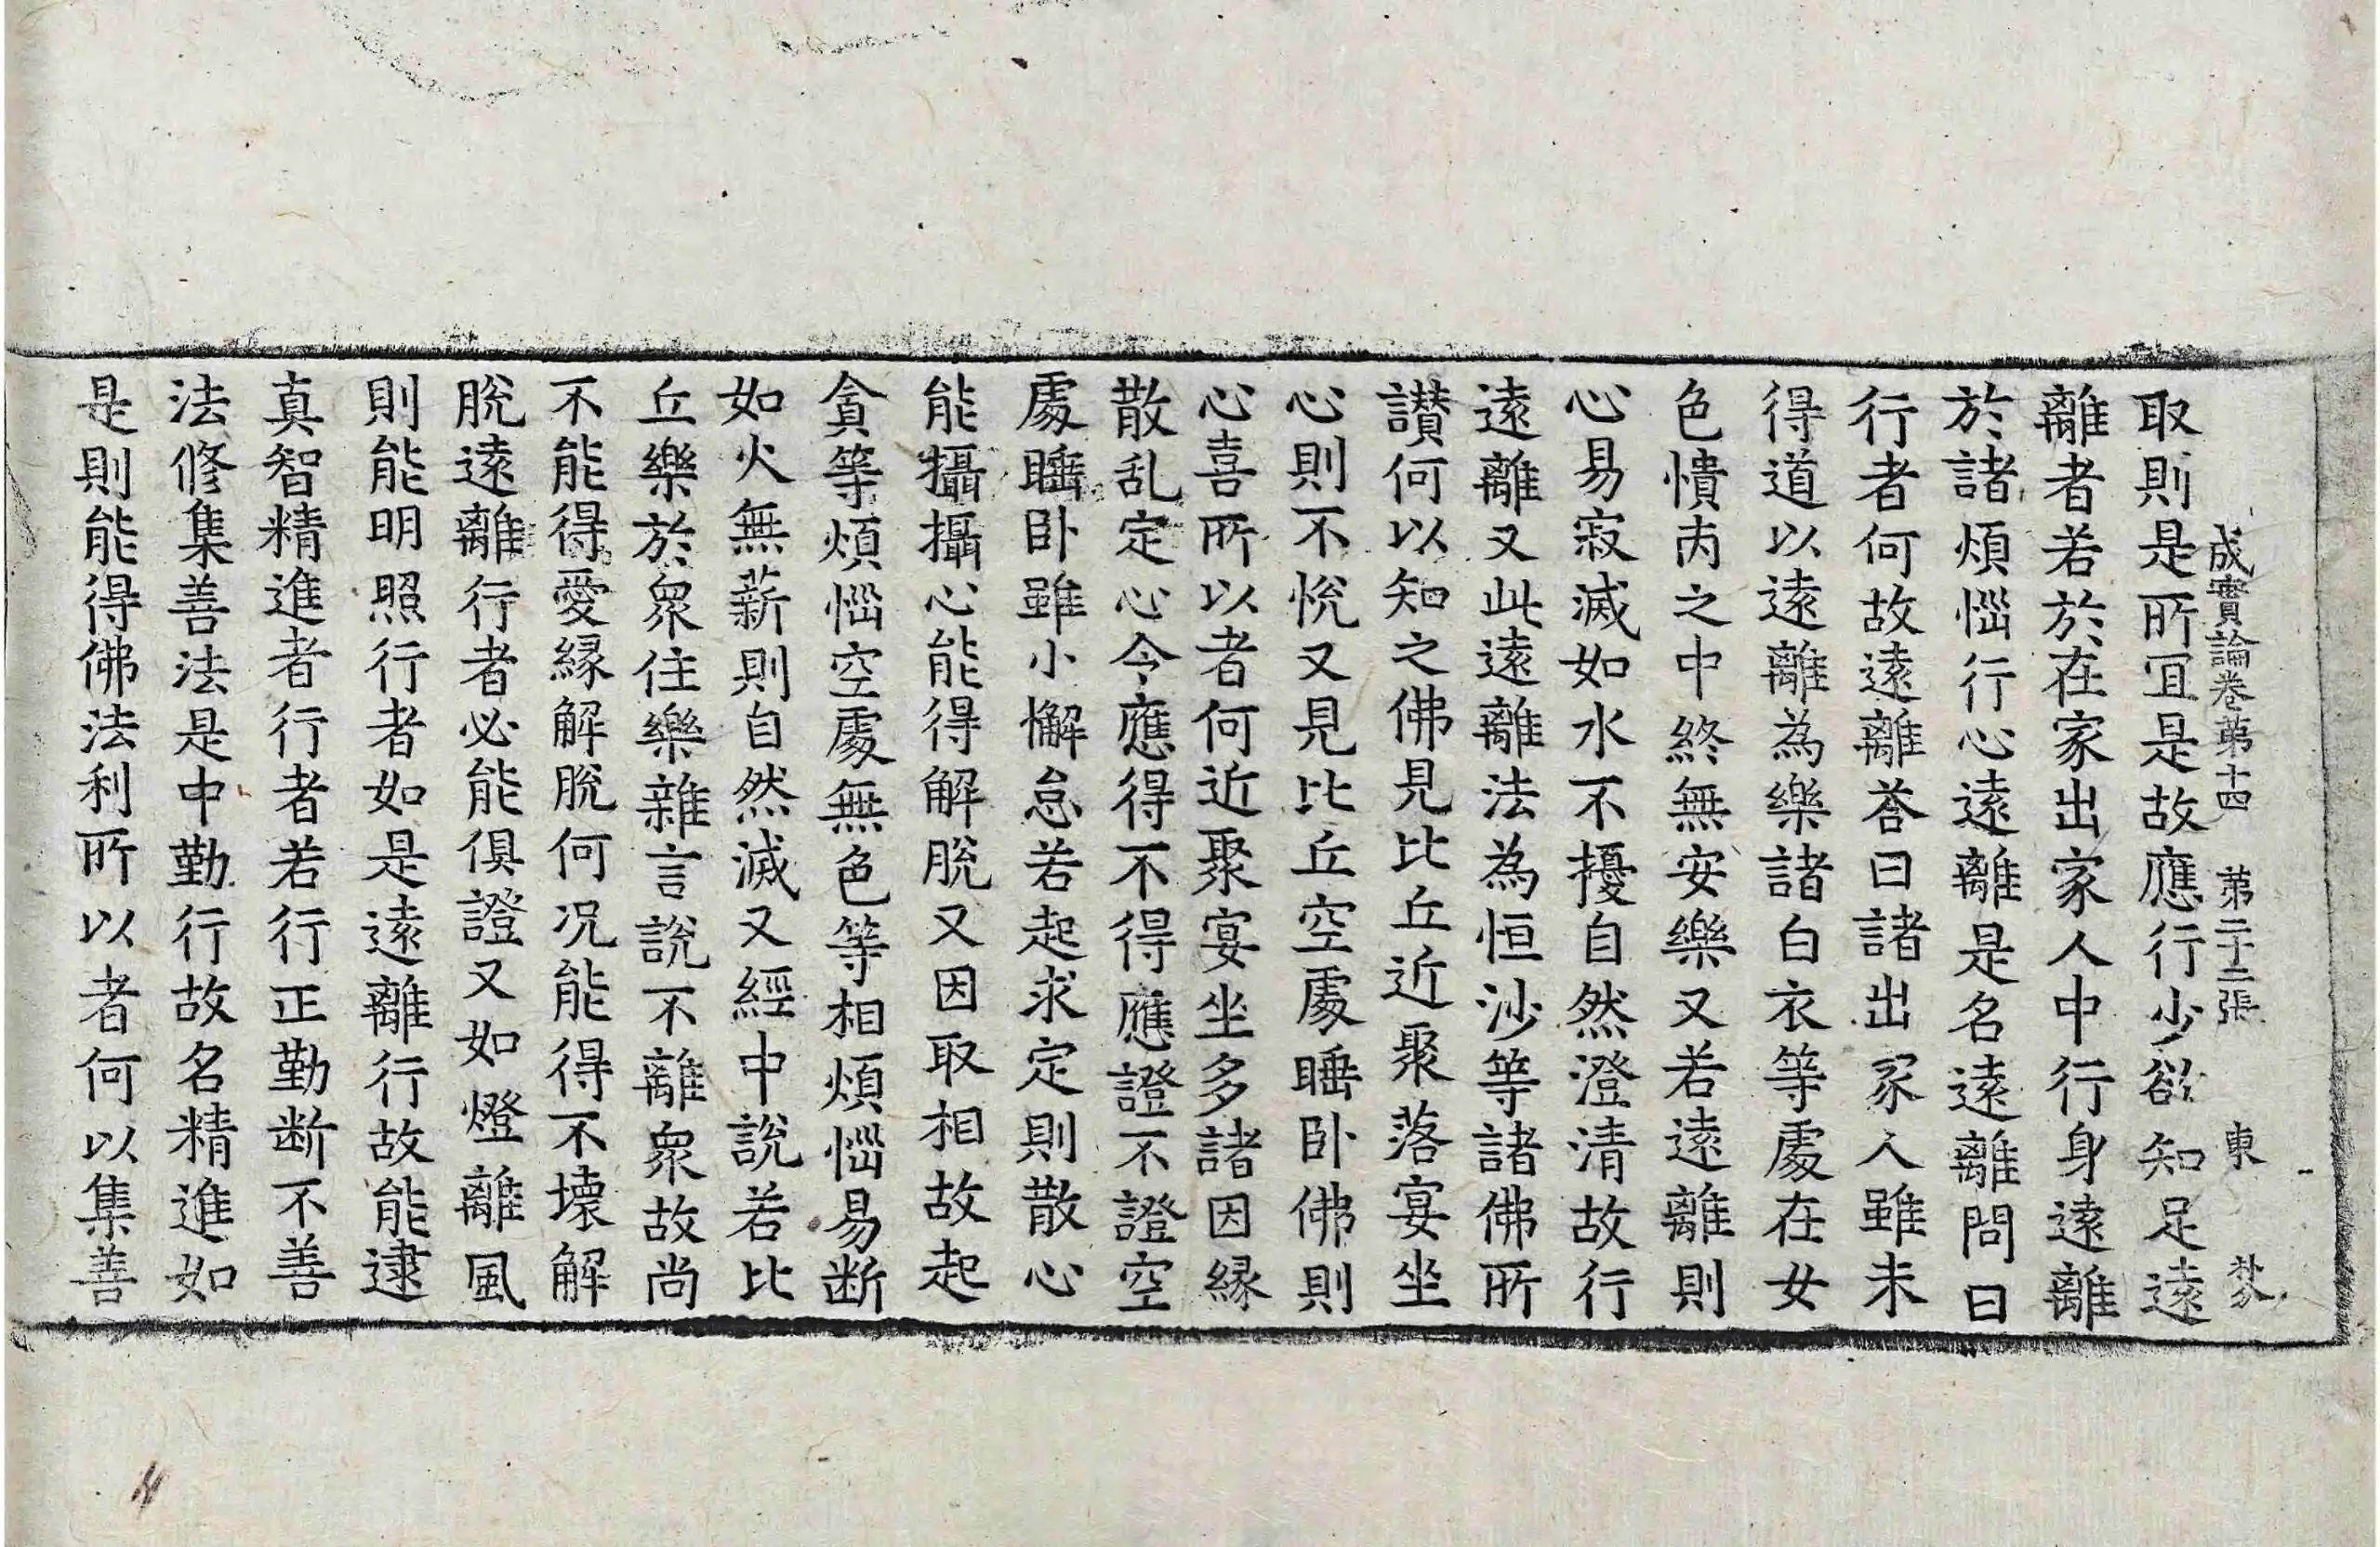 成實論卷第十四 第二十二張 東
取則是所冝是故應行少欲知足遠
離者若於在家出家人中行身遠離
於諸煩惱行心遠離是名遠離問曰
行者何故遠離荅曰諸出家人雖未
得道以遠離為樂諸白衣等處在女
色憒丙之中終無安樂又若遠離則
心易寂滅如水不擾自然澄清故行
遠離又此遠離法為恒沙等諸佛所
讃何以知之佛見比丘近聚落宴坐
心則不悅又見比丘空處睡卧佛則
心喜所以者何近聚宴坐多諸因緣
散乱定心令應得不得應證不證空
處睡卧雖小懈怠若起求定則散心
能攝攝心能得解脫又因取相故起
貪等煩惱空處無色等相煩惱易断
如火無薪則自然滅又經中說若比
丘樂於衆住樂雜言說不離衆故尚
不能得愛緣解脫何況能得不壞解
脫遠離行者必能俱證又如燈離風
則能明照行者如是遠離行故能逮
真智精進者行者若行正勤断不善
法修集善法是中勤行故名精進如
是則能得佛法利所以者何以集善